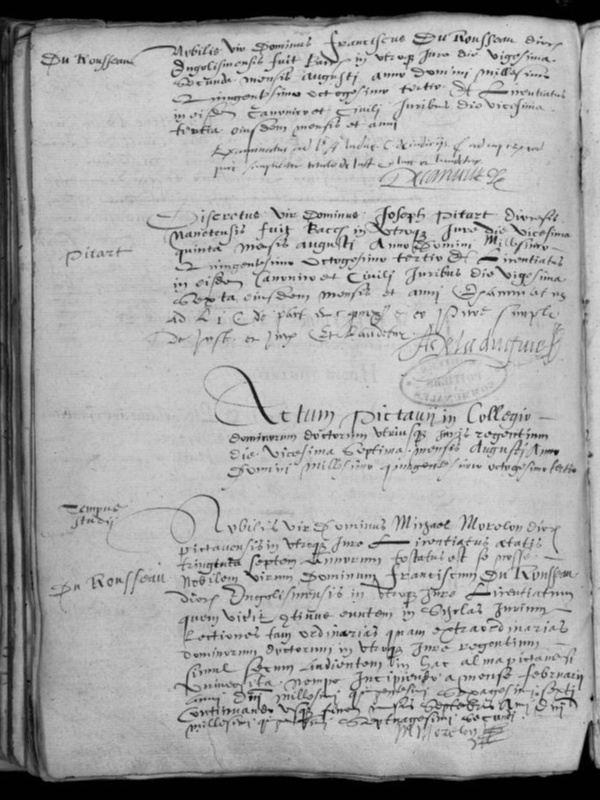 Du Rousseau
Nobilis vir Dominus Franciscus Du Rousseau dioc
Engolismensis fuit Bacc in utroq Jure die vigesima
secunda mensis augusti anno domini millesimo
Quingentesimo octogesimo tertio Et Licentiatus
in eisdem Canonico et Civili Juribus die vicesima
tertia eiusdem mensis et anni
Examinatus ad
Pitart
Discretus vir dominus Joseph Pitart diocesis
Nanetensis fuit Bacc in utroq Jure die vicesima
quinta mensis augusti Anno Domini Millesimo
Quingentesimo Octogesimo tertio Et Licentiatus
in eisdem Canonico et Civili Juribus die vigesima
Sexta eiusdem mensis et anni Examinatus
ad simple
De Just et Jure Et laudetur
Actum Pictavii in Collegio
dominorum doctorum utriusq Juris regentium
die vicesima Septima mensis Augusti Anno
Domini millesimo quingentesimo octogesimo tertio
Tempus
studii
Nobilis vir Dominus Michael Morelon dioc
pictavensis in utroq Jure Licentiatus ætatis
triginta septem Annorum testatus est se nosse
Du Rousseau
Nobilem virum Dominum Franciscum Du Rousseau
dioc Engolismensis in utroq Jure Licentiatum
quem vidit continue euntem in Scholas Jurium
Lectiones tam ordinarias quam extraordinarias
dominorum doctorum in utroq Jure regentium
simul secum audientem in hac alma pictavensi
Universita nempe Incipiendo a mense februarii
anni dni millesimi quingentesimi sexagesimi septi
Continuando usq finem mensis Septembris Ani dni
millesimi quingentesimi Septuagesimi secundi
Morelon